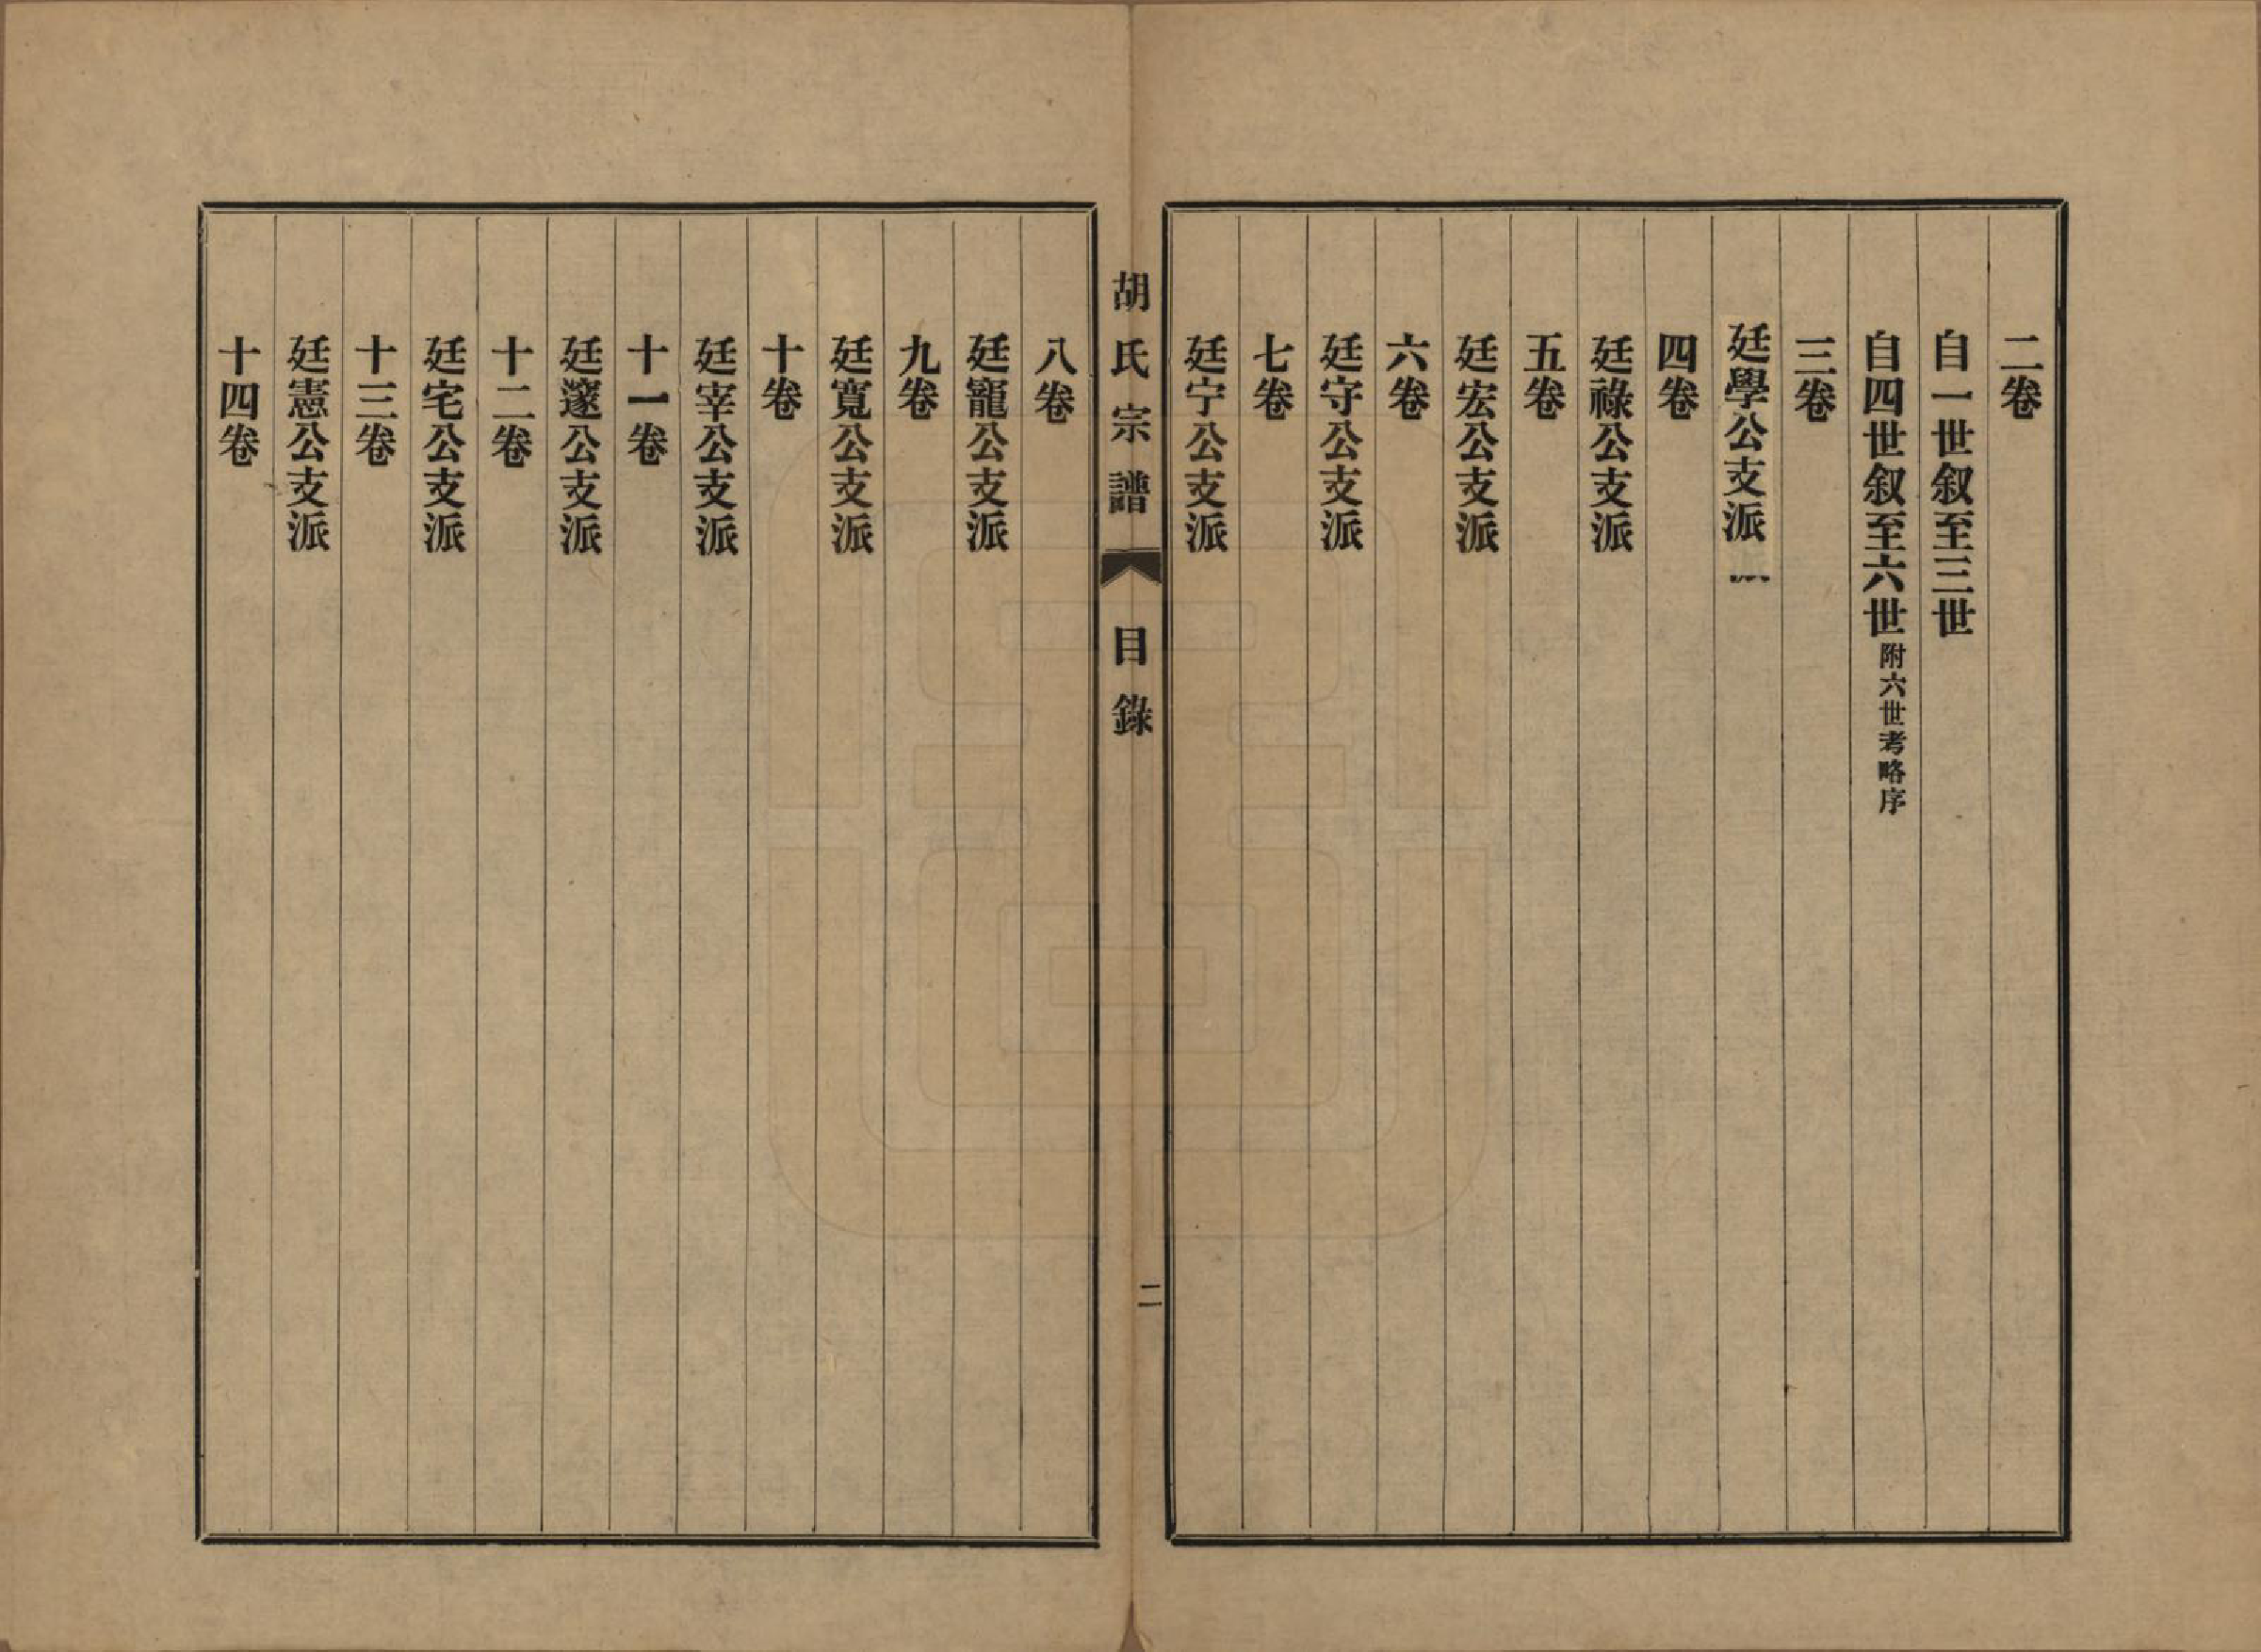 二卷
自一世叙至三世
自四世叙至六世附六世考略序
三卷
廷學公支派
四卷
廷祿公支派
五卷
廷宏公支派
六卷
廷守公支派
七卷
廷宁公支派
胡氏宗譜
目錄
二
八卷
廷寵公支派
九卷
廷寬公支派
十卷
廷宰公支派
十一卷
廷邃公支派
十二卷
廷宅公支派
十三卷
廷憲公支派
十四卷